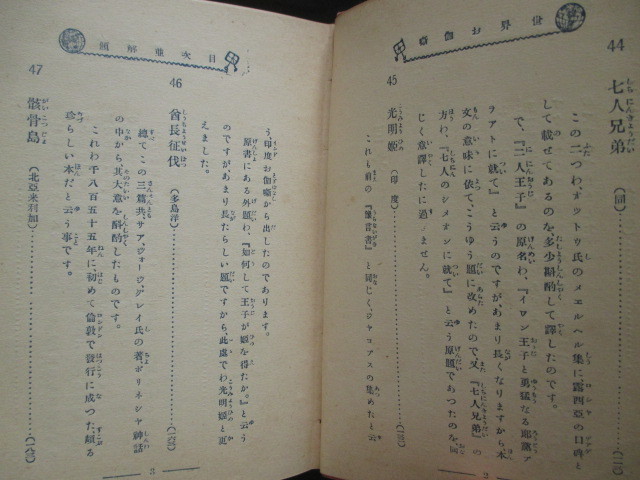 世界お伽噺
44
七人兄弟 (同)
この二つわ、オツトウ氏のメエルヘル集に露西亞の口碑と
して載せてあるのを、多少斟酌して譯したのです。
で、『二人王子』の原名わ、『イワン王子と勇猛なる
ヲアトに就て』と云うのですがあまり長くなりますから本
文の意味に依て、こうゆう題に改めたので、又『七人兄弟』の
方わ、『七人のシメオンに就て』と云う原題であつたのを同
じく意譯したに過ノません。
45
光明姫 (印度)
これも前の
と同じく、ジャコブスの集めたと云
2
目次並解題
う、印度お伽噺から出したのであります。
原書にある外題わ、『如何して王子が姫を得たか。』と云う
のですがあまり長たらしい題ですから、此處でわ光明姫と
えました。
46
酋長征伐 (多島洋)
總てこの三篇共、サア、ジョージ、グレイ氏の著、ポリネシャ神話
の中から、其大意を斟酌したものです。
これわ千八百五十五年に初めて倫敦で發行に成つた頗る
珍らしい本だと云う事です。
47
骸骨島 (北亞米利加)
3